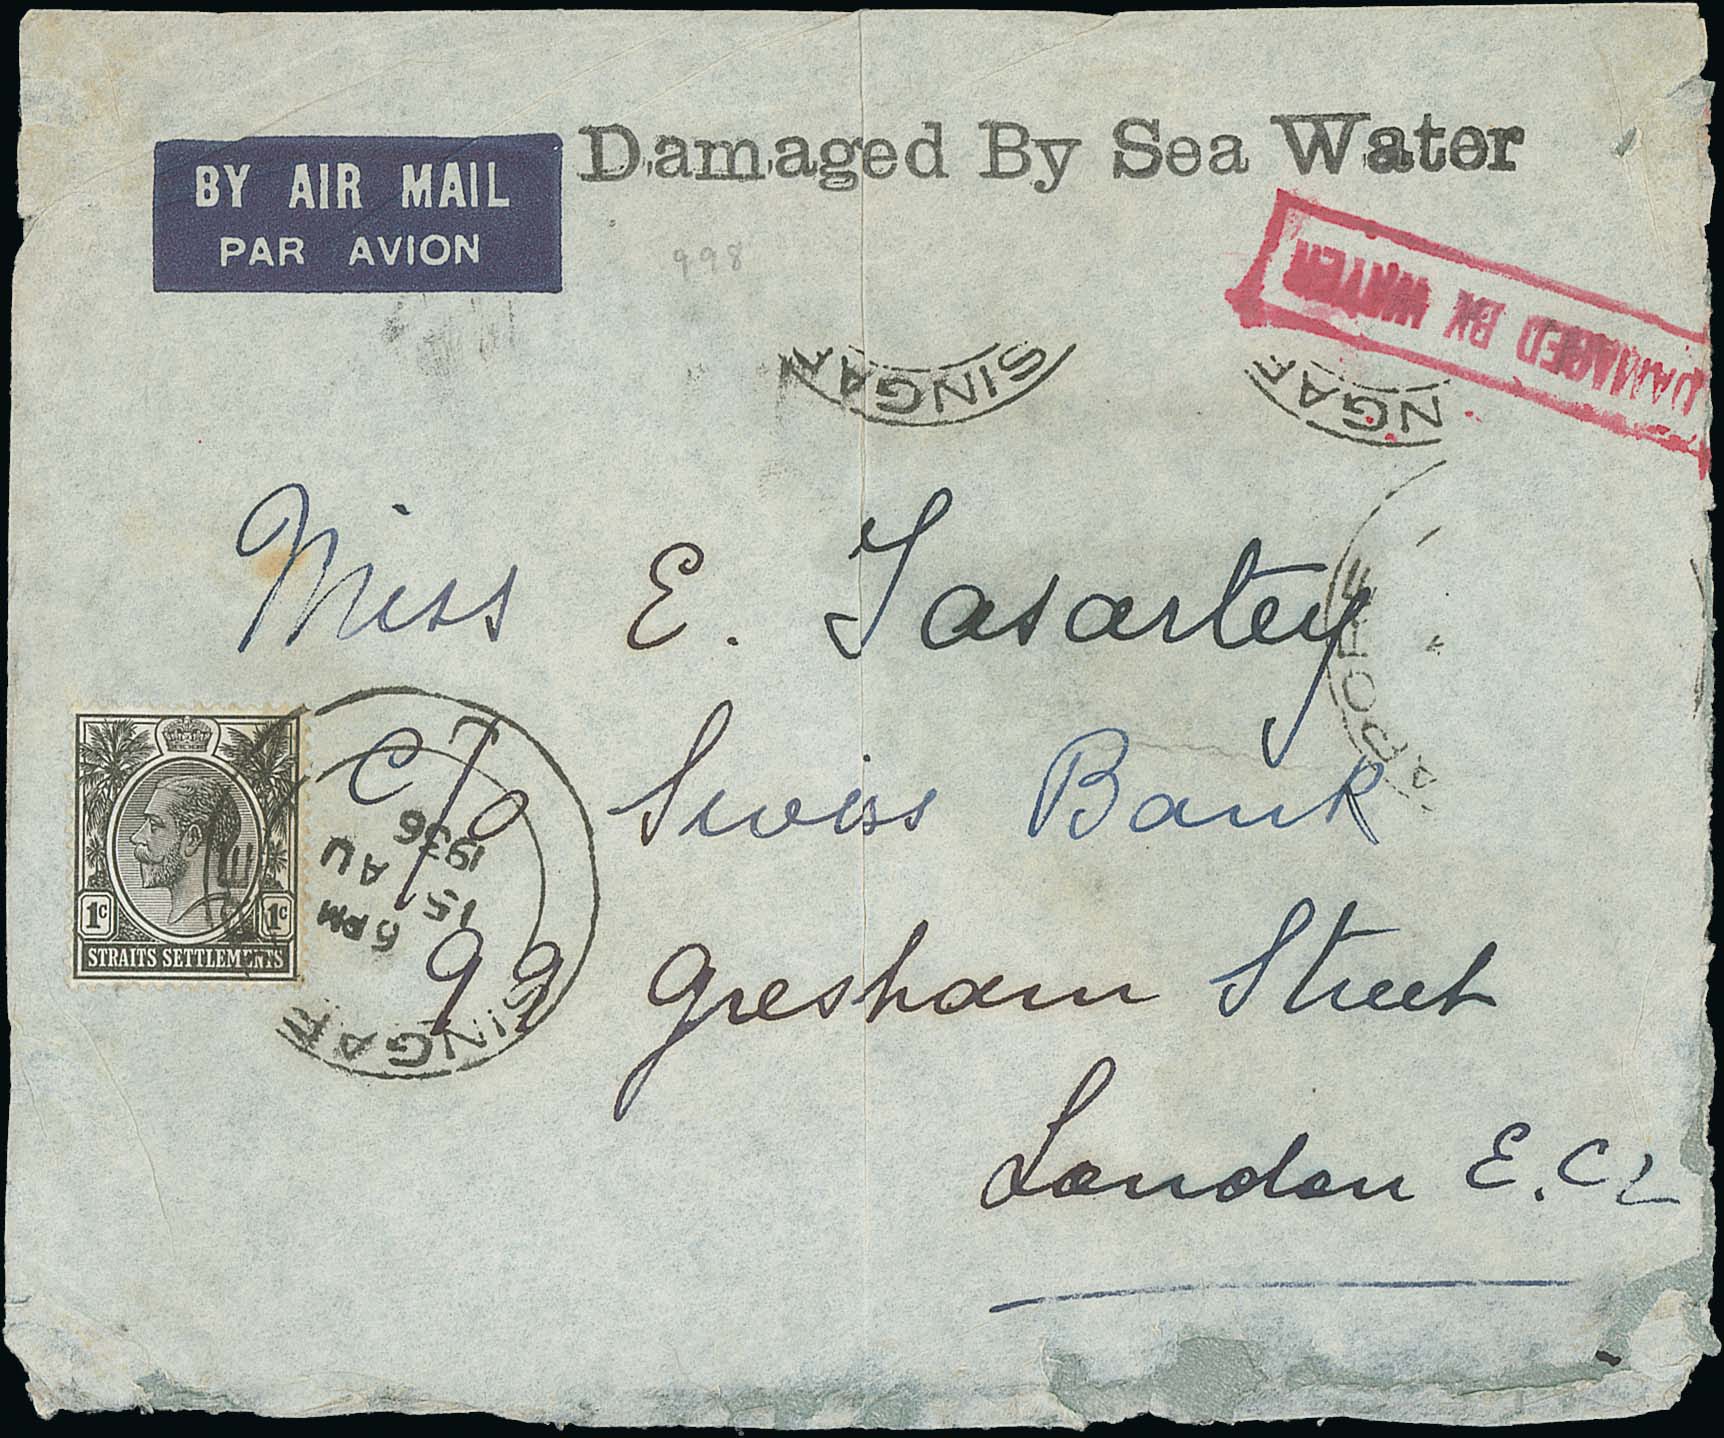 BY AIR MAIL
PAR AVION
Damaged By Sea Water
998
DAMAGED BY WATER
SINGAP
NGAP
Miss E. Tasartey
APORE
C/o Swiss Bank
1c 1c
STRAITS SETTLEMENTS
6 PM
15
AU
1936
SINGAP
99 Gresham Street
London E.C2